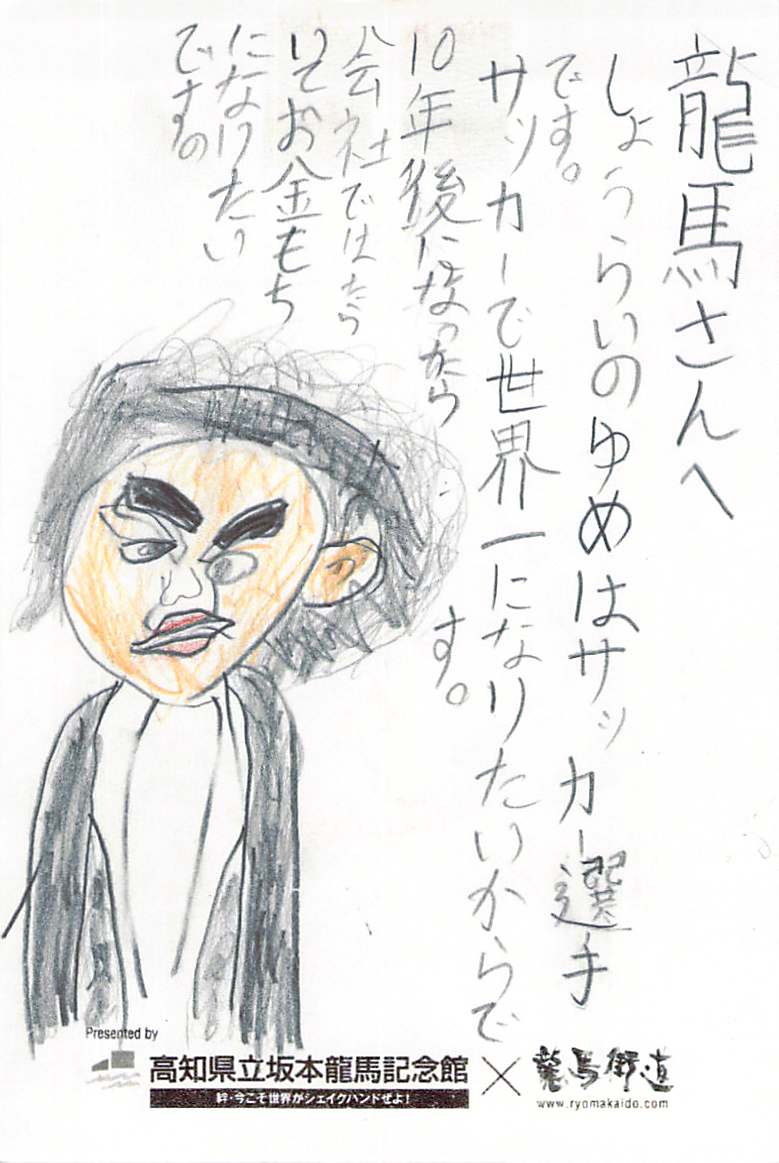 龍馬さんへ
しょうらいのゆめはサッカー選手
です。
サッカーで世界一になりたいからで
す。
10年後になったら
会社ではたら
いてお金もち
になりたい
ですの
Presented by
高知県立坂本龍馬記念館×龍馬街道
絆・今こそ世界がシェイクハンドぜよ!
www.ryomakaido.com